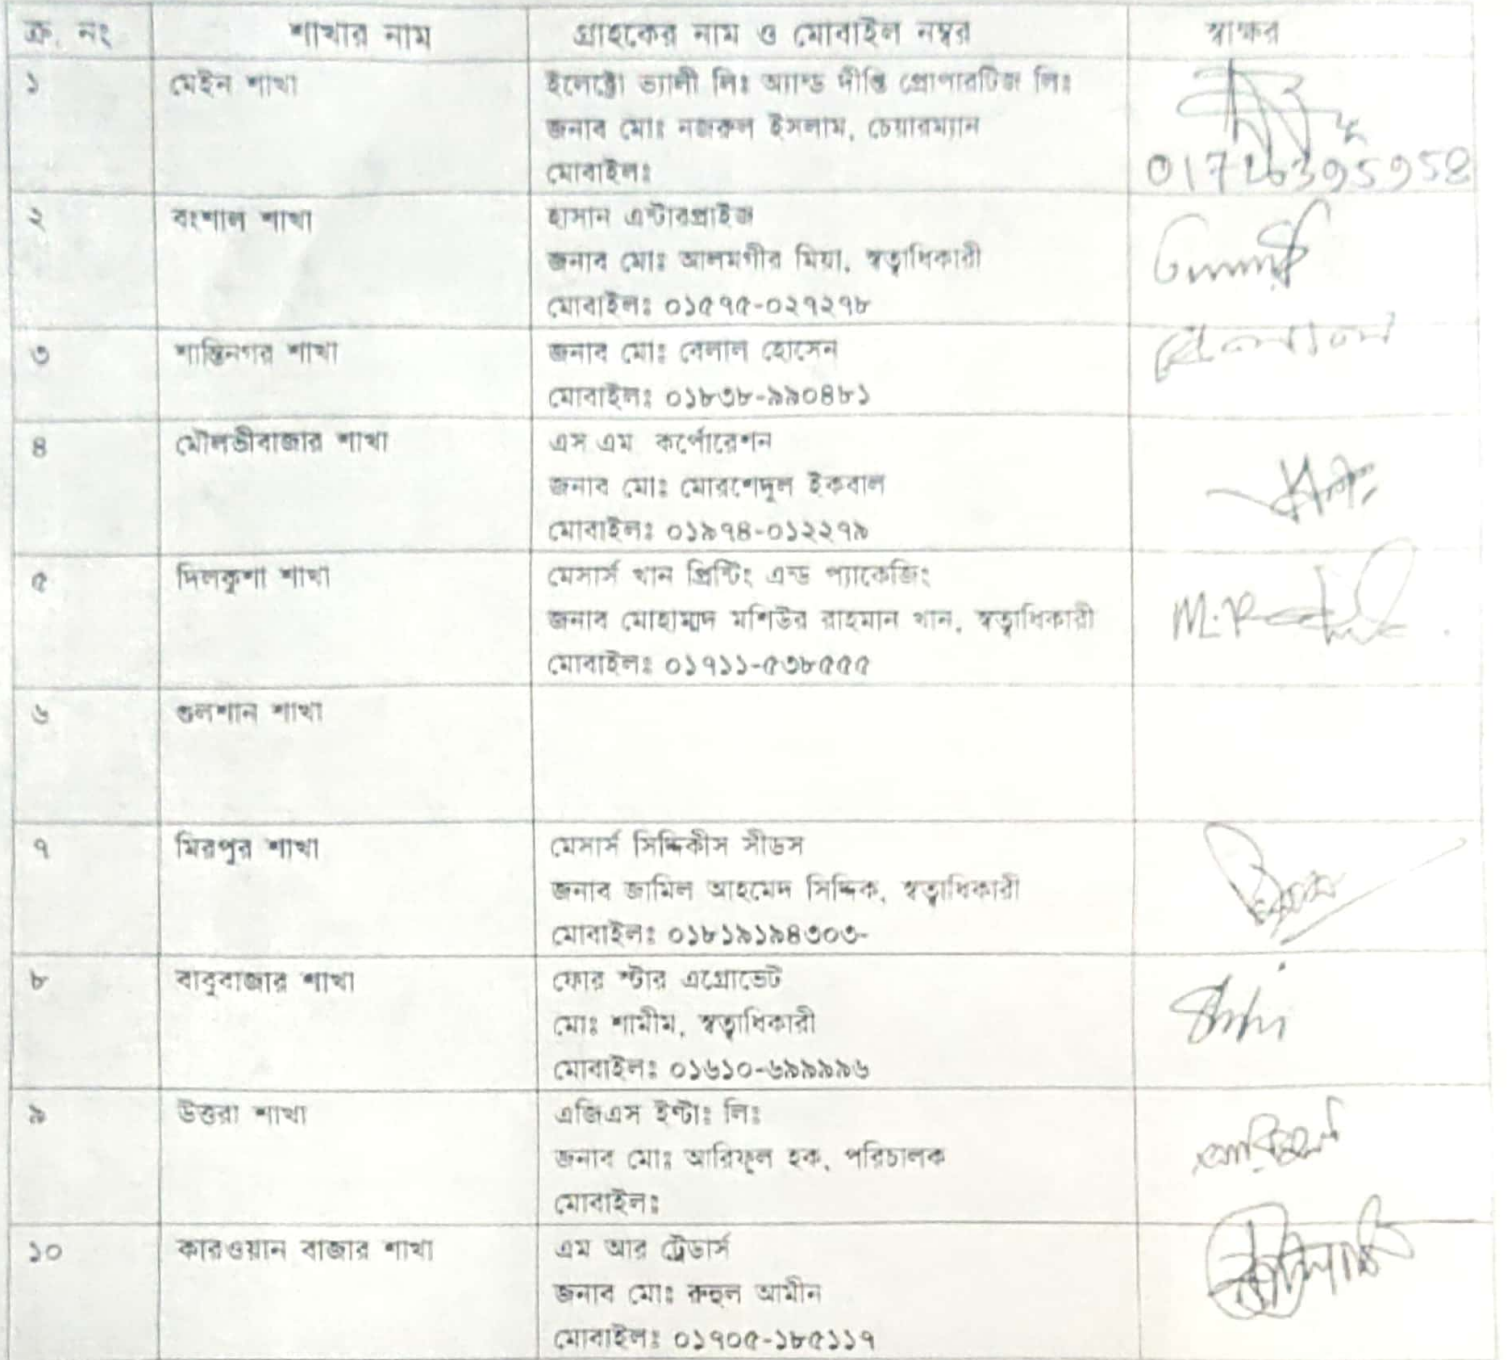 ক্র. নং শাখার নাম গ্রাহকের নাম ও মোবাইল নম্বর স্বাক্ষর
১ মেইন শাখা ইলেক্ট্রো ভ্যালী লিঃ অ্যান্ড দীপ্তি প্রোপারটিজ লিঃ
জনাব মোঃ নজরুল ইসলাম, চেয়ারম্যান
মোবাইলঃ
২ বংশাল শাখা হাসান এন্টারপ্রাইজ
জনাব মোঃ আলমগীর মিয়া, স্বত্বাধিকারী
মোবাইলঃ ০১৫৭৫-০২৭২৭৮
৩ শান্তিনগর শাখা জনাব মোঃ বেলাল হোসেন বেলাল
মোবাইলঃ ০১৮৩৮-৯৯০৪৮১
৪ মৌলভীবাজার শাখা এস এম কর্পোরেশন
জনাব মোঃ মোরশেদুল ইকবাল
মোবাইলঃ ০১৯৭৪-০১২২৭৯
৫ দিলকুশা শাখা মেসার্স খান প্রিন্টিং এন্ড প্যাকেজিং
জনাব মোহাম্মদ মশিউর রাহমান খান, স্বত্বাধিকারী
মোবাইলঃ ০১৭১১-৫৩৮৫৫৫
৬ গুলশান শাখা
৭ মিরপুর শাখা মেসার্স সিদ্দিকীস সীডস
জনাব জামিল আহমেদ সিদ্দিক, স্বত্বাধিকারী
মোবাইলঃ ০১৮১৯১৯৪৩০৩-
৮ বাবুবাজার শাখা ফোর স্টার এগ্রোভেট
মোঃ শামীম, স্বত্বাধিকারী
মোবাইলঃ ০১৬১০-৬৯৯৯৯৬
৯ উত্তরা শাখা এজিএস ইন্টাঃ লিঃ
জনাব মোঃ আরিফুল হক, পরিচালক
মোবাইলঃ
১০ কারওয়ান বাজার শাখা এম আর ট্রেডার্স
জনাব মোঃ রুহুল আমীন
মোবাইলঃ ০১৭০৫-১৮৫১১৭